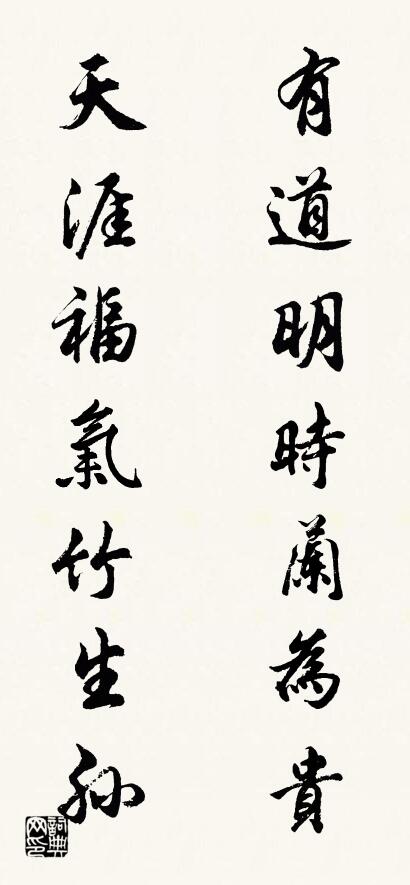 有道明時蘭為貴
天涯福氣竹生孙
詞典网印